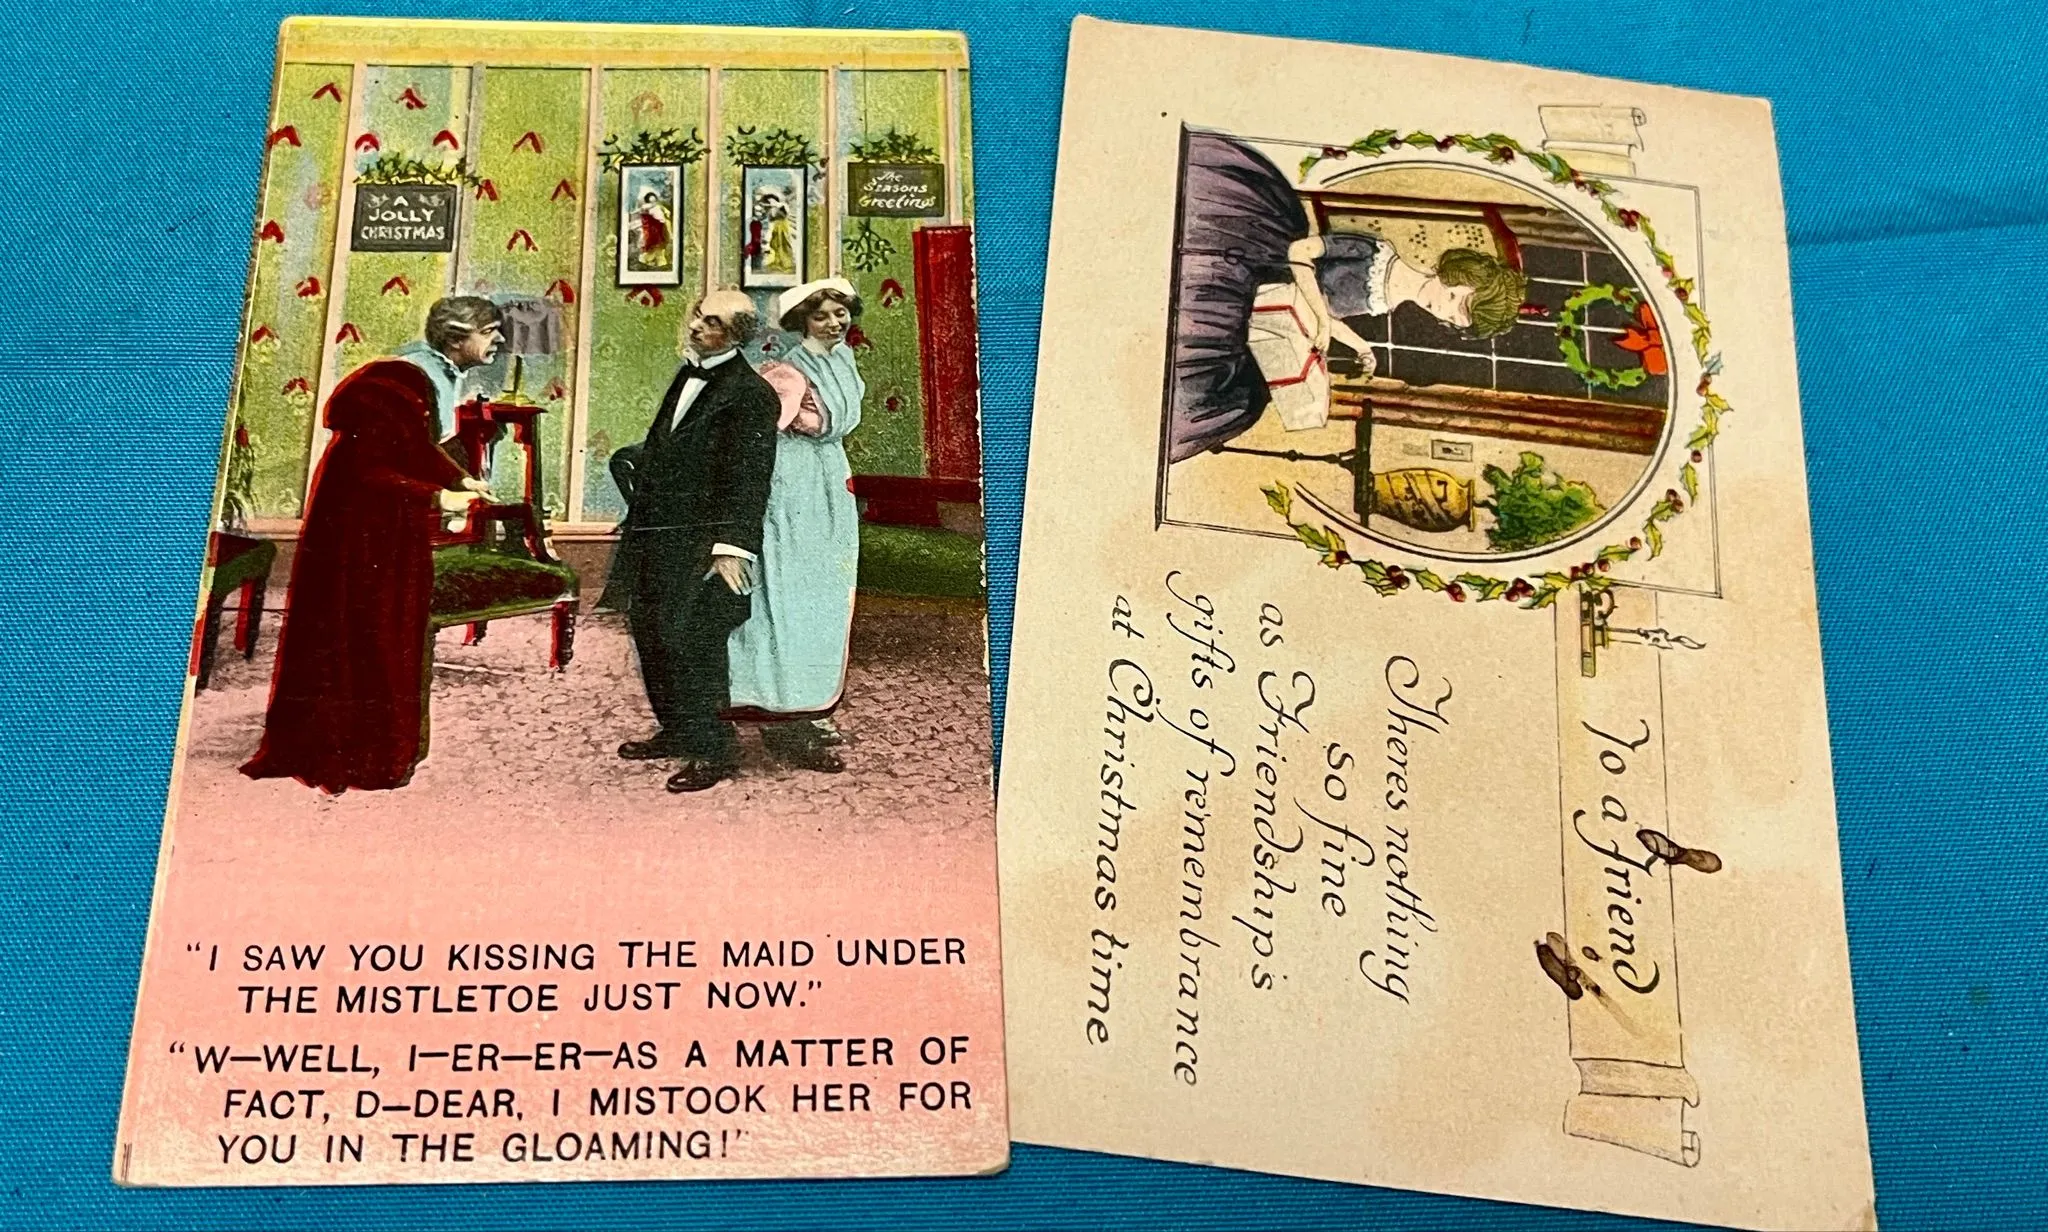 A
JOLLY
CHRISTMAS
The
Seasons
Greetings
"I SAW YOU KISSING THE MAID UNDER
THE MISTLETOE JUST NOW."
"W—WELL, I—ER—ER—AS A MATTER OF
FACT, D—DEAR, I MISTOOK HER FOR
YOU IN THE GLOAMING!"
To a friend
Theres nothing
so fine
as Friendship's
gifts of remembrance
at Christmas time